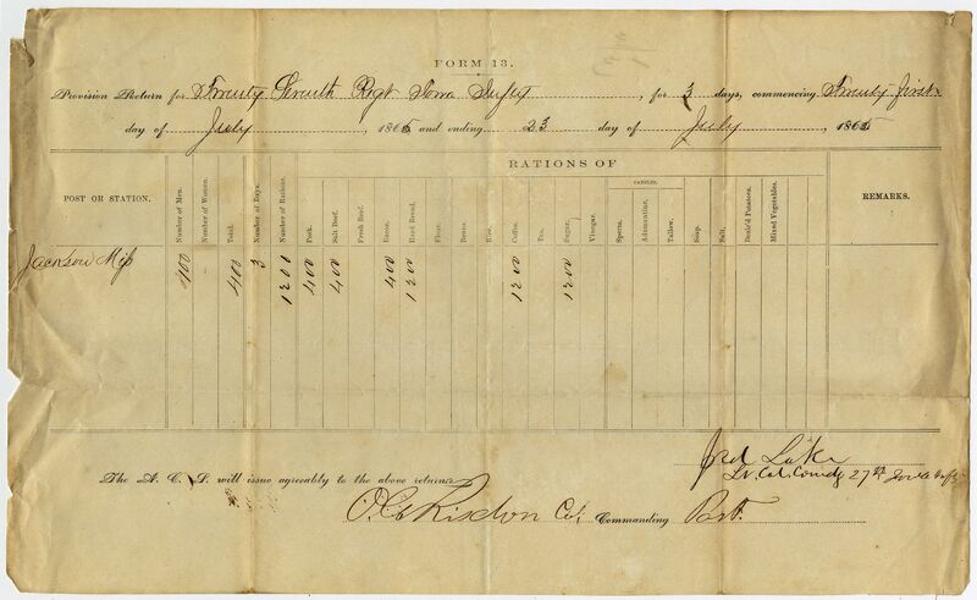 FORM 13.
Provision Return for Twenty Seventh Regt Iowa Infty, for 3 days, commencing Twenty first
day of July, 1865 and ending 23 day of July, 1865
RATIONS OF
POST OR STATION.
Number of Men.
Number of Women.
Total.
Number of Days.
Number of Rations.
Pork.
Salt Beef.
Fresh Beef.
Bacon.
Hard Bread.
Flour.
Beans.
Rice.
Coffee.
Tea.
Sugar.
Vinegar.
CANDLES.
Sperm.
Adamantine.
Tallow.
Soap.
Salt.
Desic'd Potatoes.
Mixed Vegetables.
REMARKS.
Jackson Mip 400 400 3 1200 400 400 400 1200 1200 1200
Jed Lake
Lt. Col. Comdg 27th Iowa Infty
The A. C. S. will issue agreeably to the above return.
Col; Commanding Post.